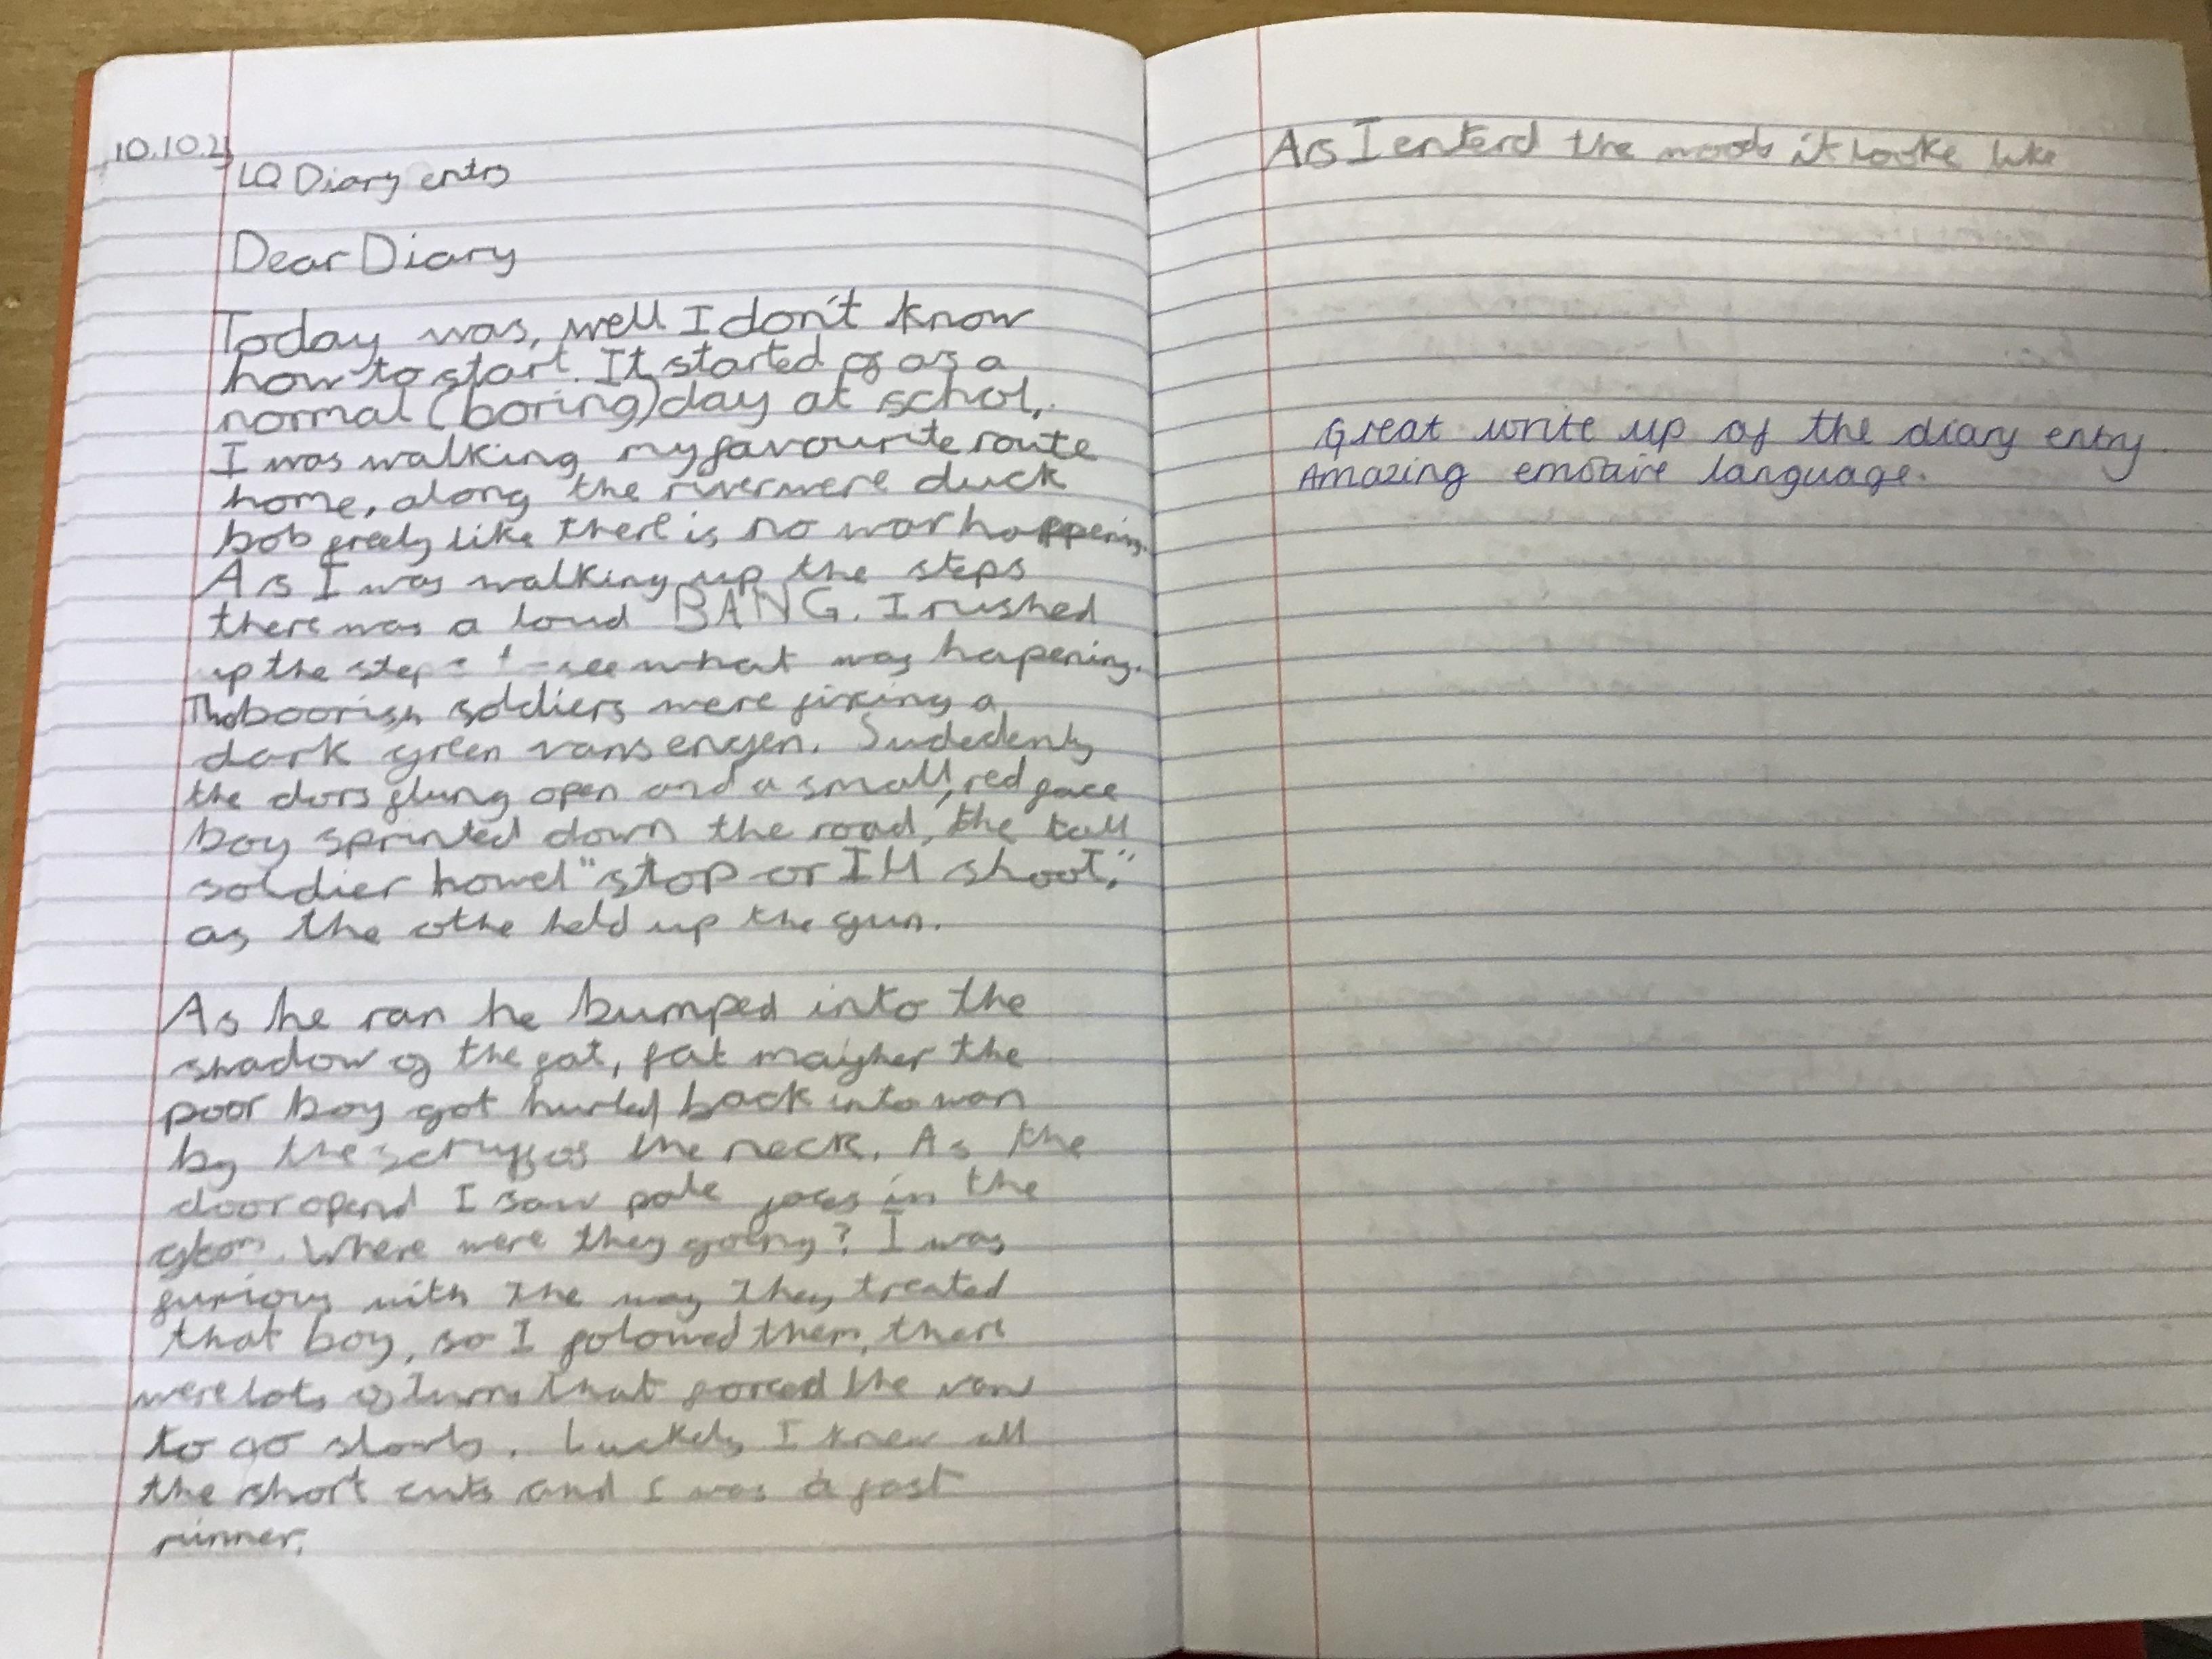 10.10.21
LQ Diary entry
Dear Diary
Today was, well I don't know
how to start. It started of as a
normal (boring) day at schol,
I was walking my favourite route
home, along the river were duck
bob freely like there is no war happening.
As I was walking up the steps
there was a loud BANG. I rushed
up the steps to see what was hapening.
boorish soldiers were fixing a
dark green vans engen. Sudedently
the dors flung open and a small, red face
boy sprinted down the road, the tall
soldier howel "stop or Ill shoot,"
as the othe held up the gun.
As he ran he bumped into the
shadow of the fat, fat mayher the
poor boy got hurled back into
by the scruff of the neck. As the
door opend I saw pale faces in the
gloom. Where were they going? I was
furious with the way they treated
that boy, so I folowed them, there
were lots of turns that forced the van
to go slowly. Luckely I knew all
the short cuts and I was a fast
runner.
As I enterd the woods it looke like
Great write up of the diary entry.
Amazing emotive language.